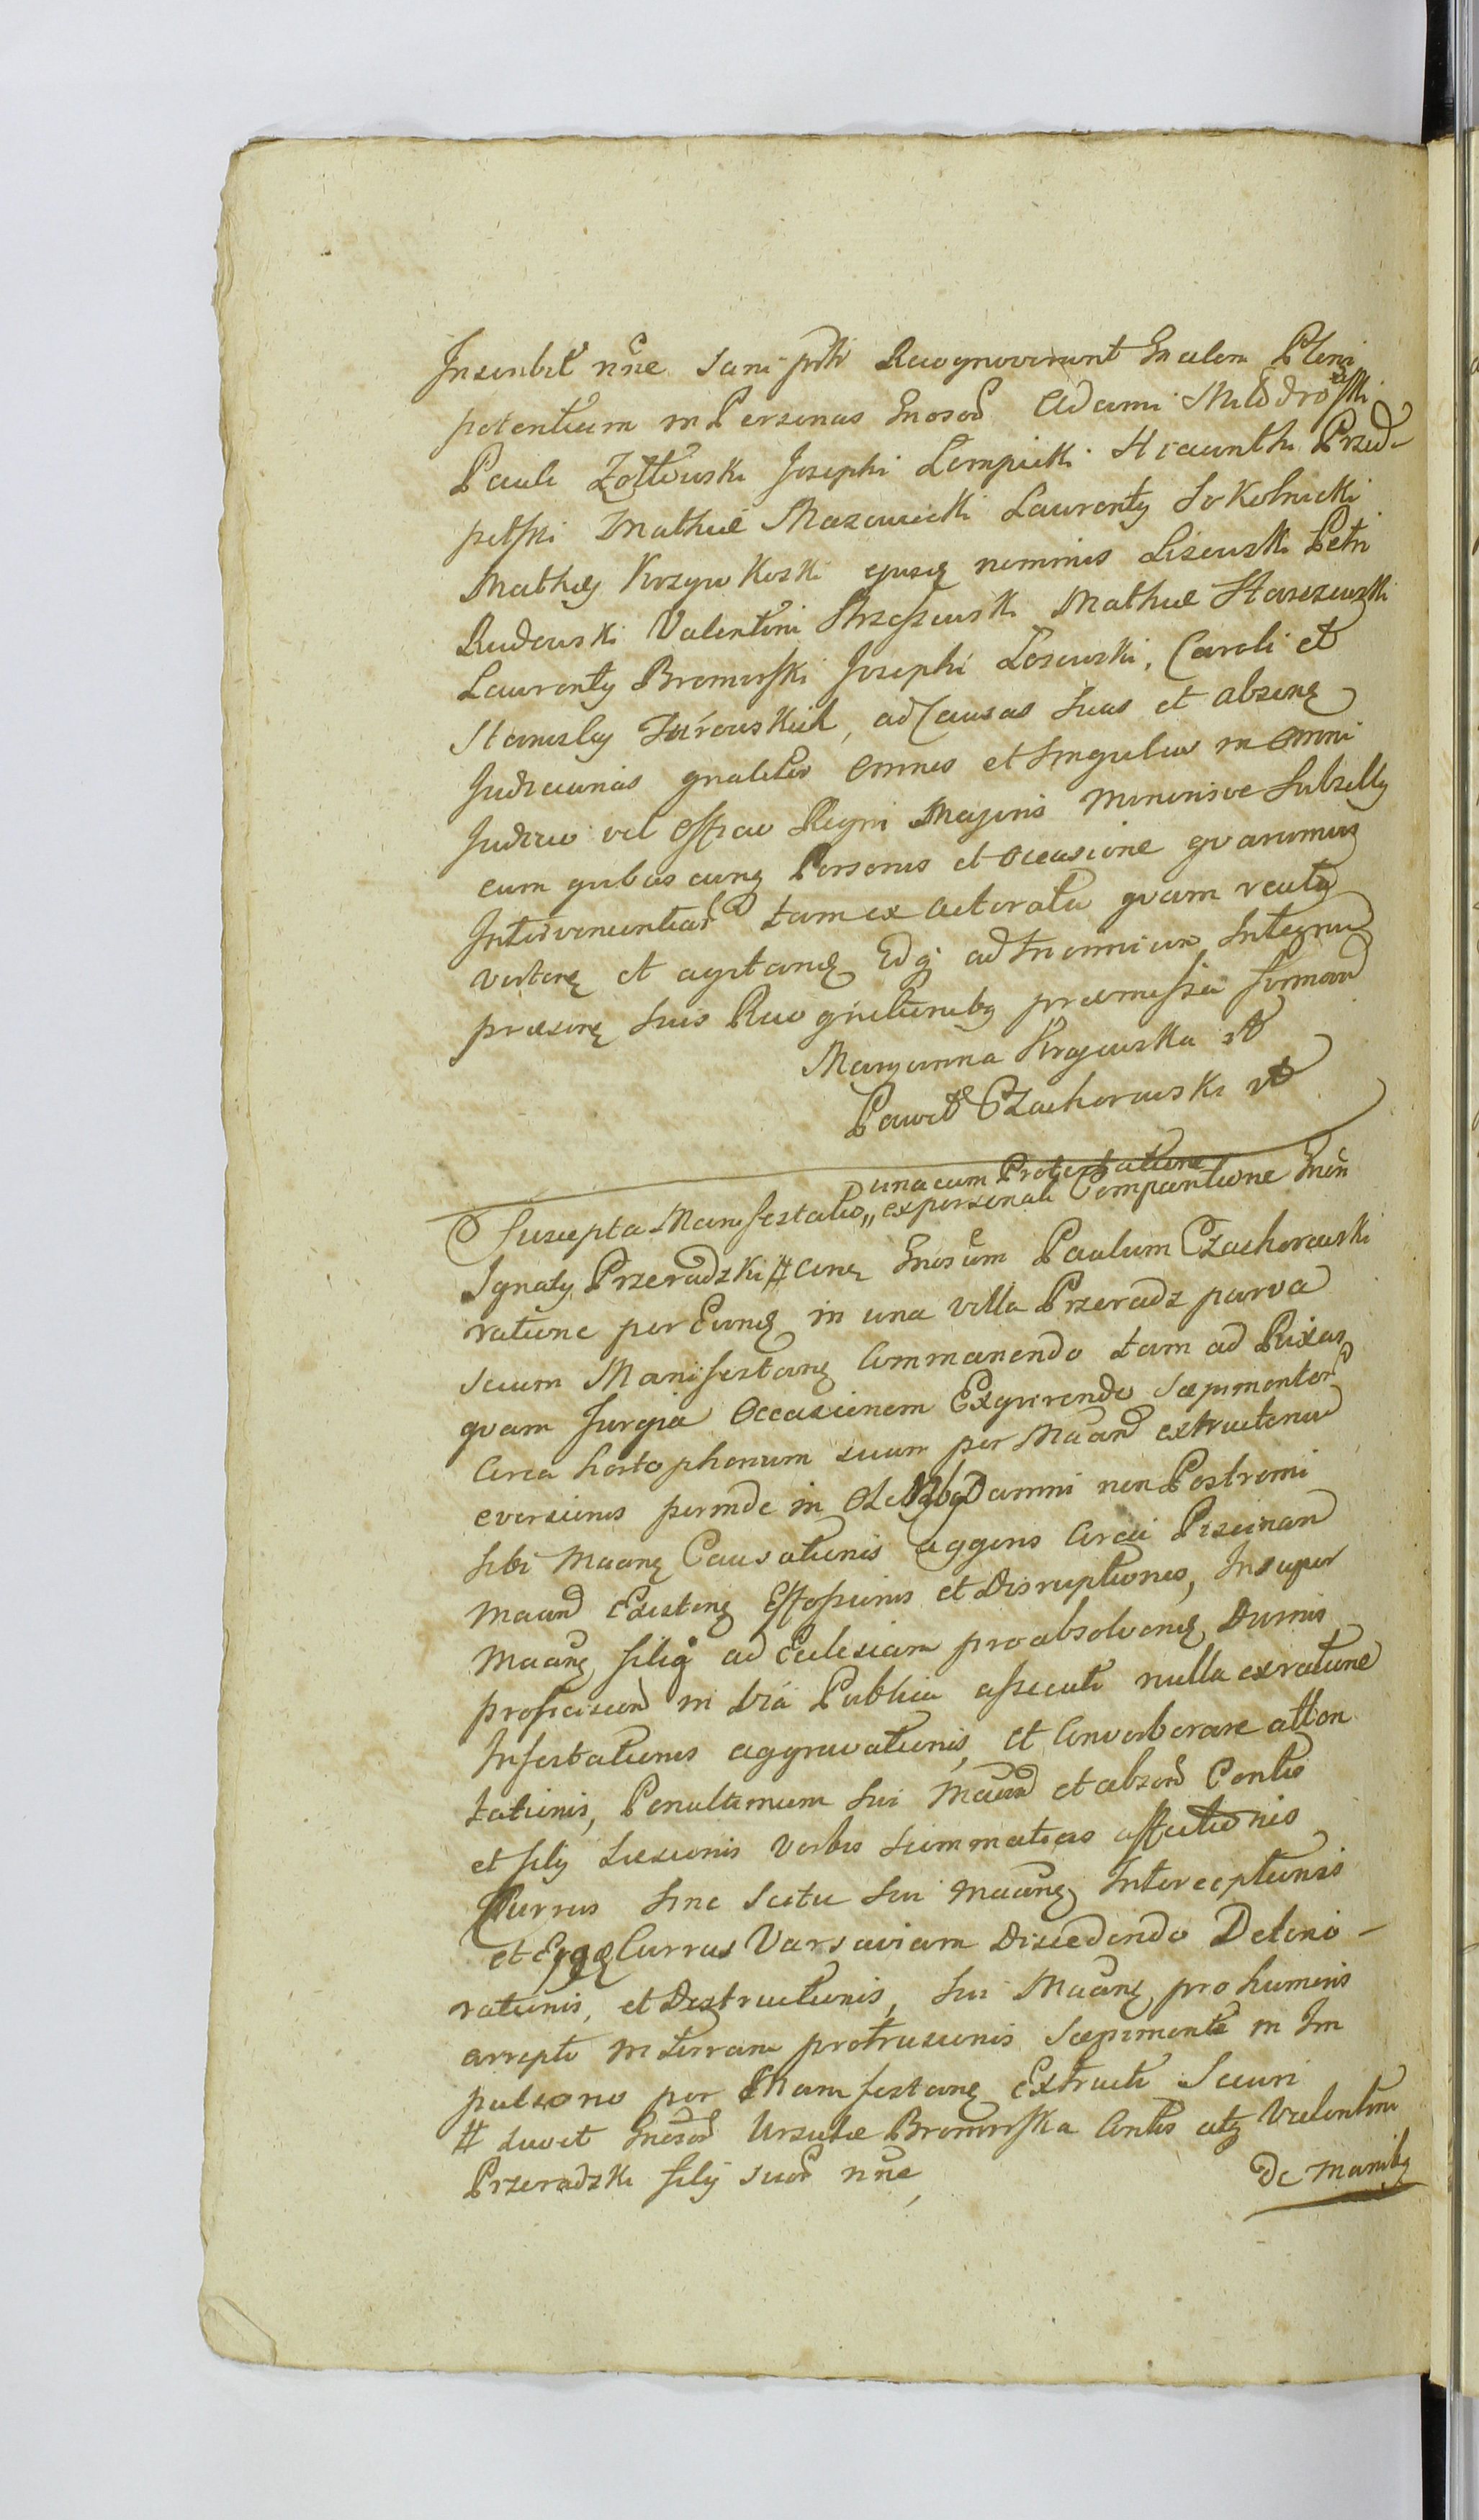 Inseribil nne sani prtr Recognoverunt Gnalem Pleni
potentiam in Personas Gnosor Adami Młodro
Pauli Zołtowski Josephi Lempicki Hiacinthi Przed
petski Mathiæ Mazowiecki Laurenty Sokolnicki
Mathiæ Krzywkoski ejusq nominis Lisewski Petri
Rudowski Valentini Mathiæ Staszewski
Laurenty Bromirski Josephi Łosewski, Caroli et
Stanislay Zurowskich, ad Causas suas et absinę
Judiciarias gnaliter omnes et singulas in omni
Judicio vel Officio Regni Majoris Minorisve Subselly
cum quibuscunq Personis et occasione quarumvis
Intervenientiar tam ex Actoratu quam reatu
vertenę et agitanę Idq ad Triennium Integrum
præsenę suis Recognitionibq præmissa firmand
Maryanna Krajewska st
Paweł Czachorowski st
unacum Protestatione
Suscepta Manifestatio,, ex personali Comparitione Gnen
Ignaty Przeradzki # cinę Gnosum Paulum Czachorowski
ratione per Eundę in una villa Przeradz parva
secum Manifestanę Commanendo tam ad Rixas
quam Jurgia Occasionem Exquirendo sæpimentor
Circa hortophorum suum per Maand extructorum
eversionis perinde in Damni non Postremi
sibi Maanę Causationis aggeris Circa Piscinam
Maand Existenę Effossionis et Disruptionis, Insuper
Maanę filiq ad Ecclesiam pro absolvendę Divinis
proficiscend in Via Publica assecuti nulla ex ratione
Infestationis aggravationis, et Converberare atten
tationis, Penultimum sui Maand et absord Contis
et fily Læsionis verbis summaticis affectionis
Currus sine scitu sui Maanę Interceptionis
et Ejqę Currus Varsaviam Discedendo Deterio-
rationis, et Destructionis, sui Maanę pro humeris
arrepti in terram protrusionis sæpimenti in Im
pulsono per Manifestanę Extructi Sauri
# tuvet Gnosor Urzulæ Bromirska Contis atq Valentini
Przeradzki fily suor nne,
De manibq